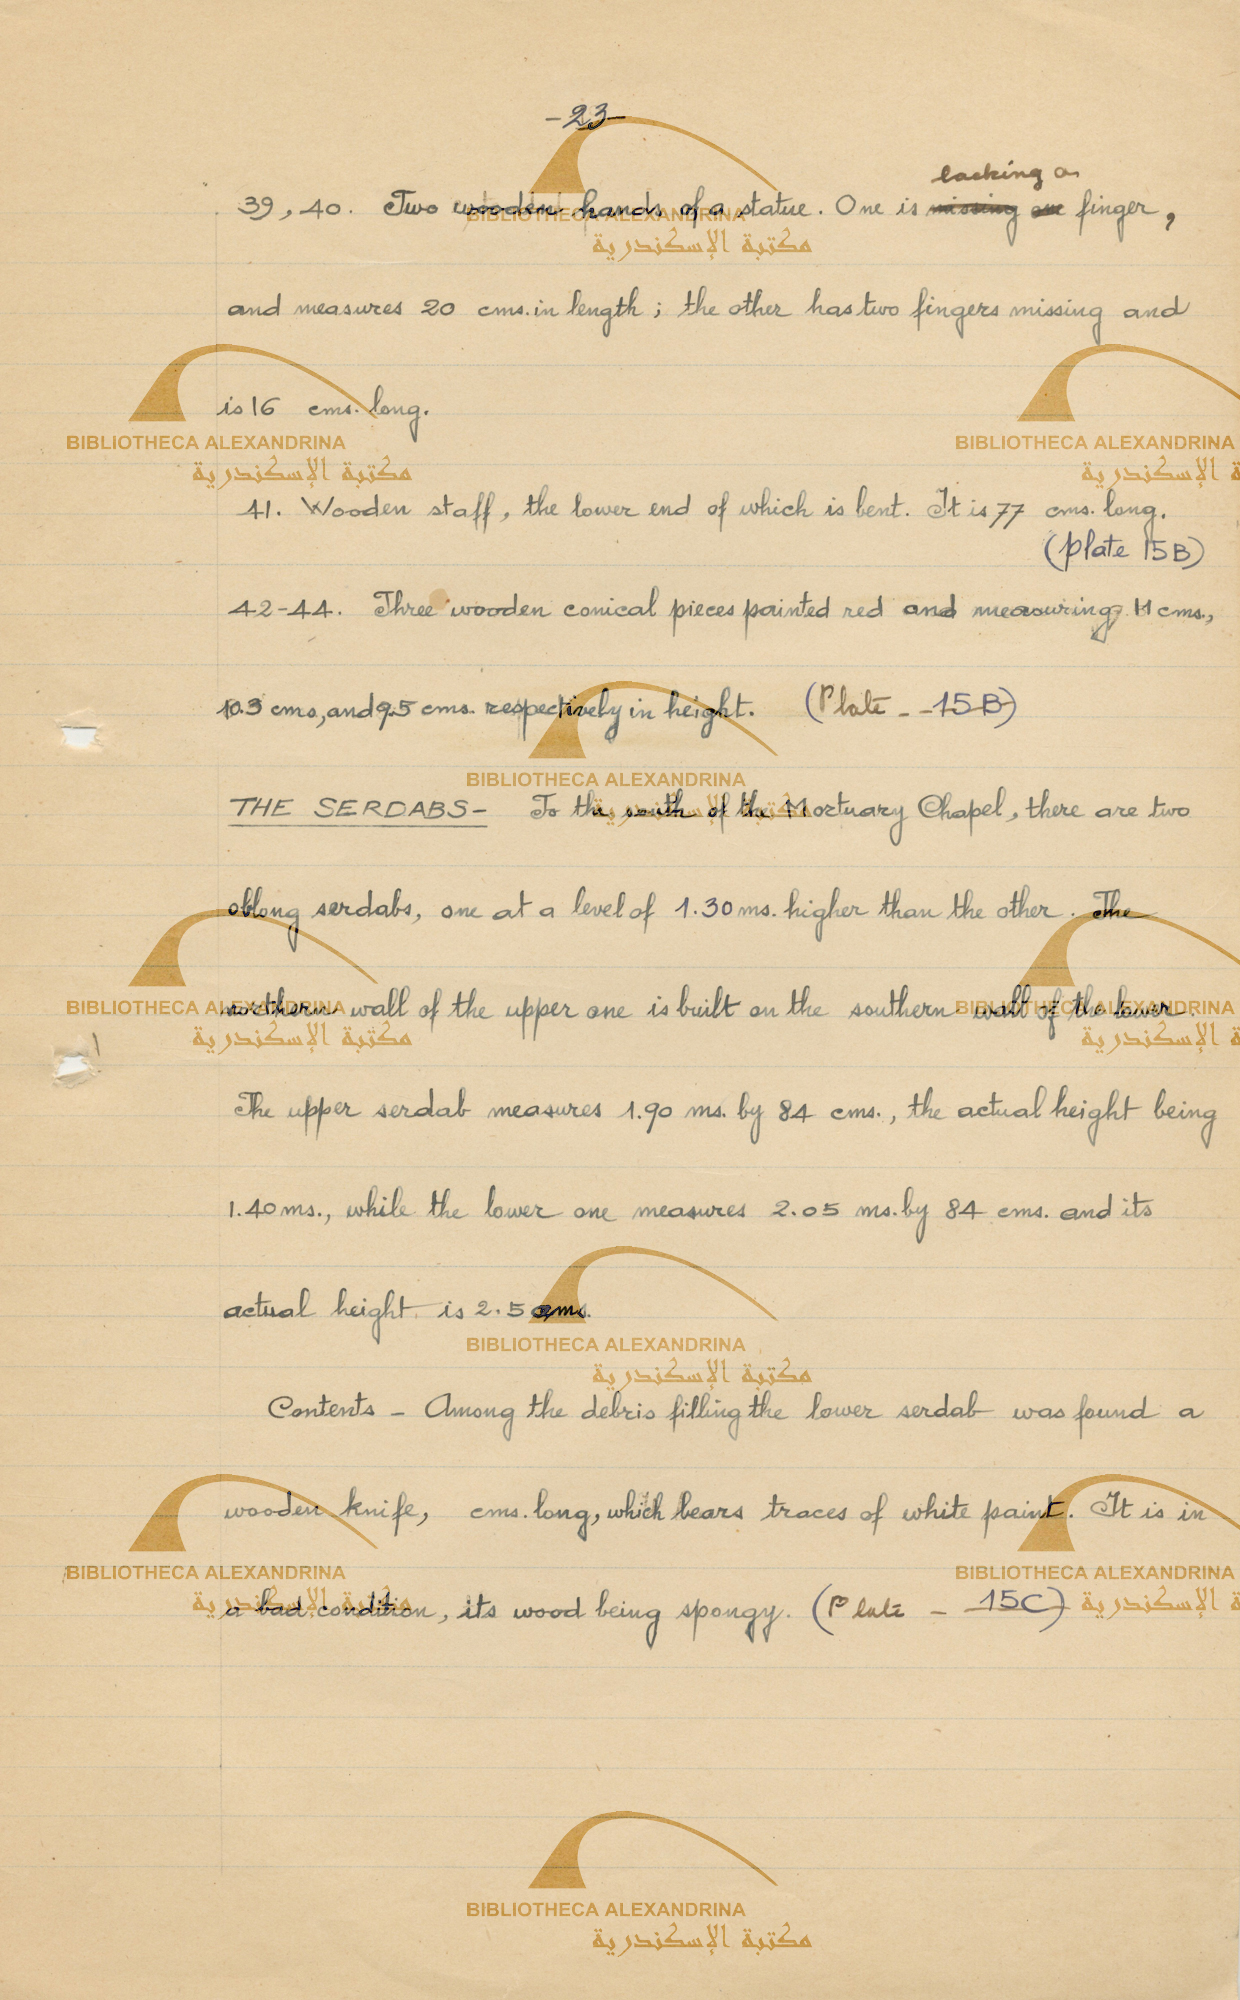 -23-
lacking a
39, 40. Two wooden hands of a statue. One is missing one finger,
and measures 20 cms. in length; the other has two fingers missing and
is 16 cms. long.
41. Wooden staff, the lower end of which is bent. It is 77 cms. long.
(plate 15B)
42-44. Three wooden conical pieces painted red and measuring 11 cms.,
10.3 cms, and 9.5 cms. respectively in height. (Plate - -15B)
THE SERDABS- To the south of the Mortuary Chapel, there are two
oblong serdabs, one at a level of 1.30 ms. higher than the other. The
northern wall of the upper one is built on the southern wall of the lower.
The upper serdab measures 1.90 ms. by 84 cms., the actual height being
1.40 ms., while the lower one measures 2.05 ms. by 84 cms. and its
actual height is 2.50 ms.
Contents - Among the debris filling the lower serdab was found a
wooden knife, cms. long, which bears traces of white paint. It is in
a bad condition, its wood being spongy. (Plate - 15C)
BIBLIOTHECA ALEXANDRINA
مكتبة الإسكندرية
BIBLIOTHECA ALEXANDRINA
مكتبة الإسكندرية
BIBLIOTHECA ALEXANDRINA
مكتبة الإسكندرية
BIBLIOTHECA ALEXANDRINA
مكتبة الإسكندرية
BIBLIOTHECA ALEXANDRINA
مكتبة الإسكندرية
BIBLIOTHECA ALEXANDRINA
مكتبة الإسكندرية
BIBLIOTHECA ALEXANDRINA
مكتبة الإسكندرية
BIBLIOTHECA ALEXANDRINA
مكتبة الإسكندرية
BIBLIOTHECA ALEXANDRINA
مكتبة الإسكندرية
BIBLIOTHECA ALEXANDRINA
مكتبة الإسكندرية